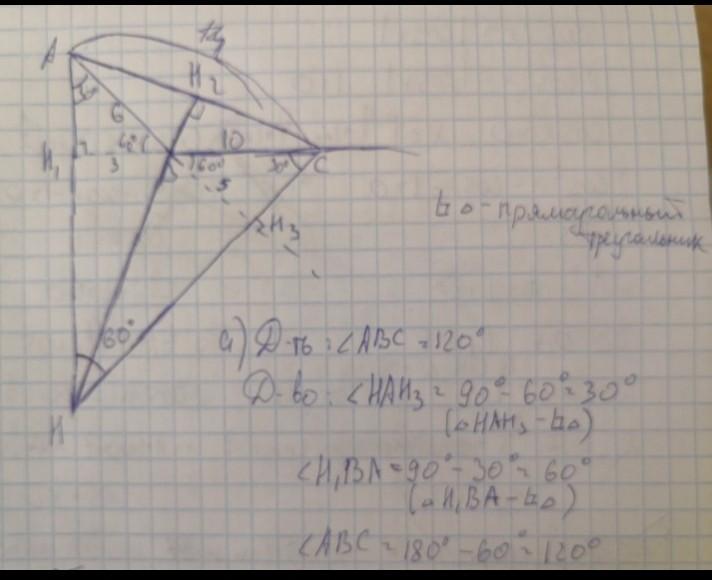 14
A
H₂
30°
6
H₁
3
60°
10
B
60°
30°
C
5
H₃
⊾△ - прямоугольный
треугольник
60°
H
а) Д-ть: ∠ABC = 120°
Д-во: ∠HAH₃ = 90° - 60° = 30°
(△HAH₃ - ⊾△)
∠H₁BA = 90° - 30° = 60°
(△H₁BA - ⊾△)
∠ABC = 180° - 60° = 120°